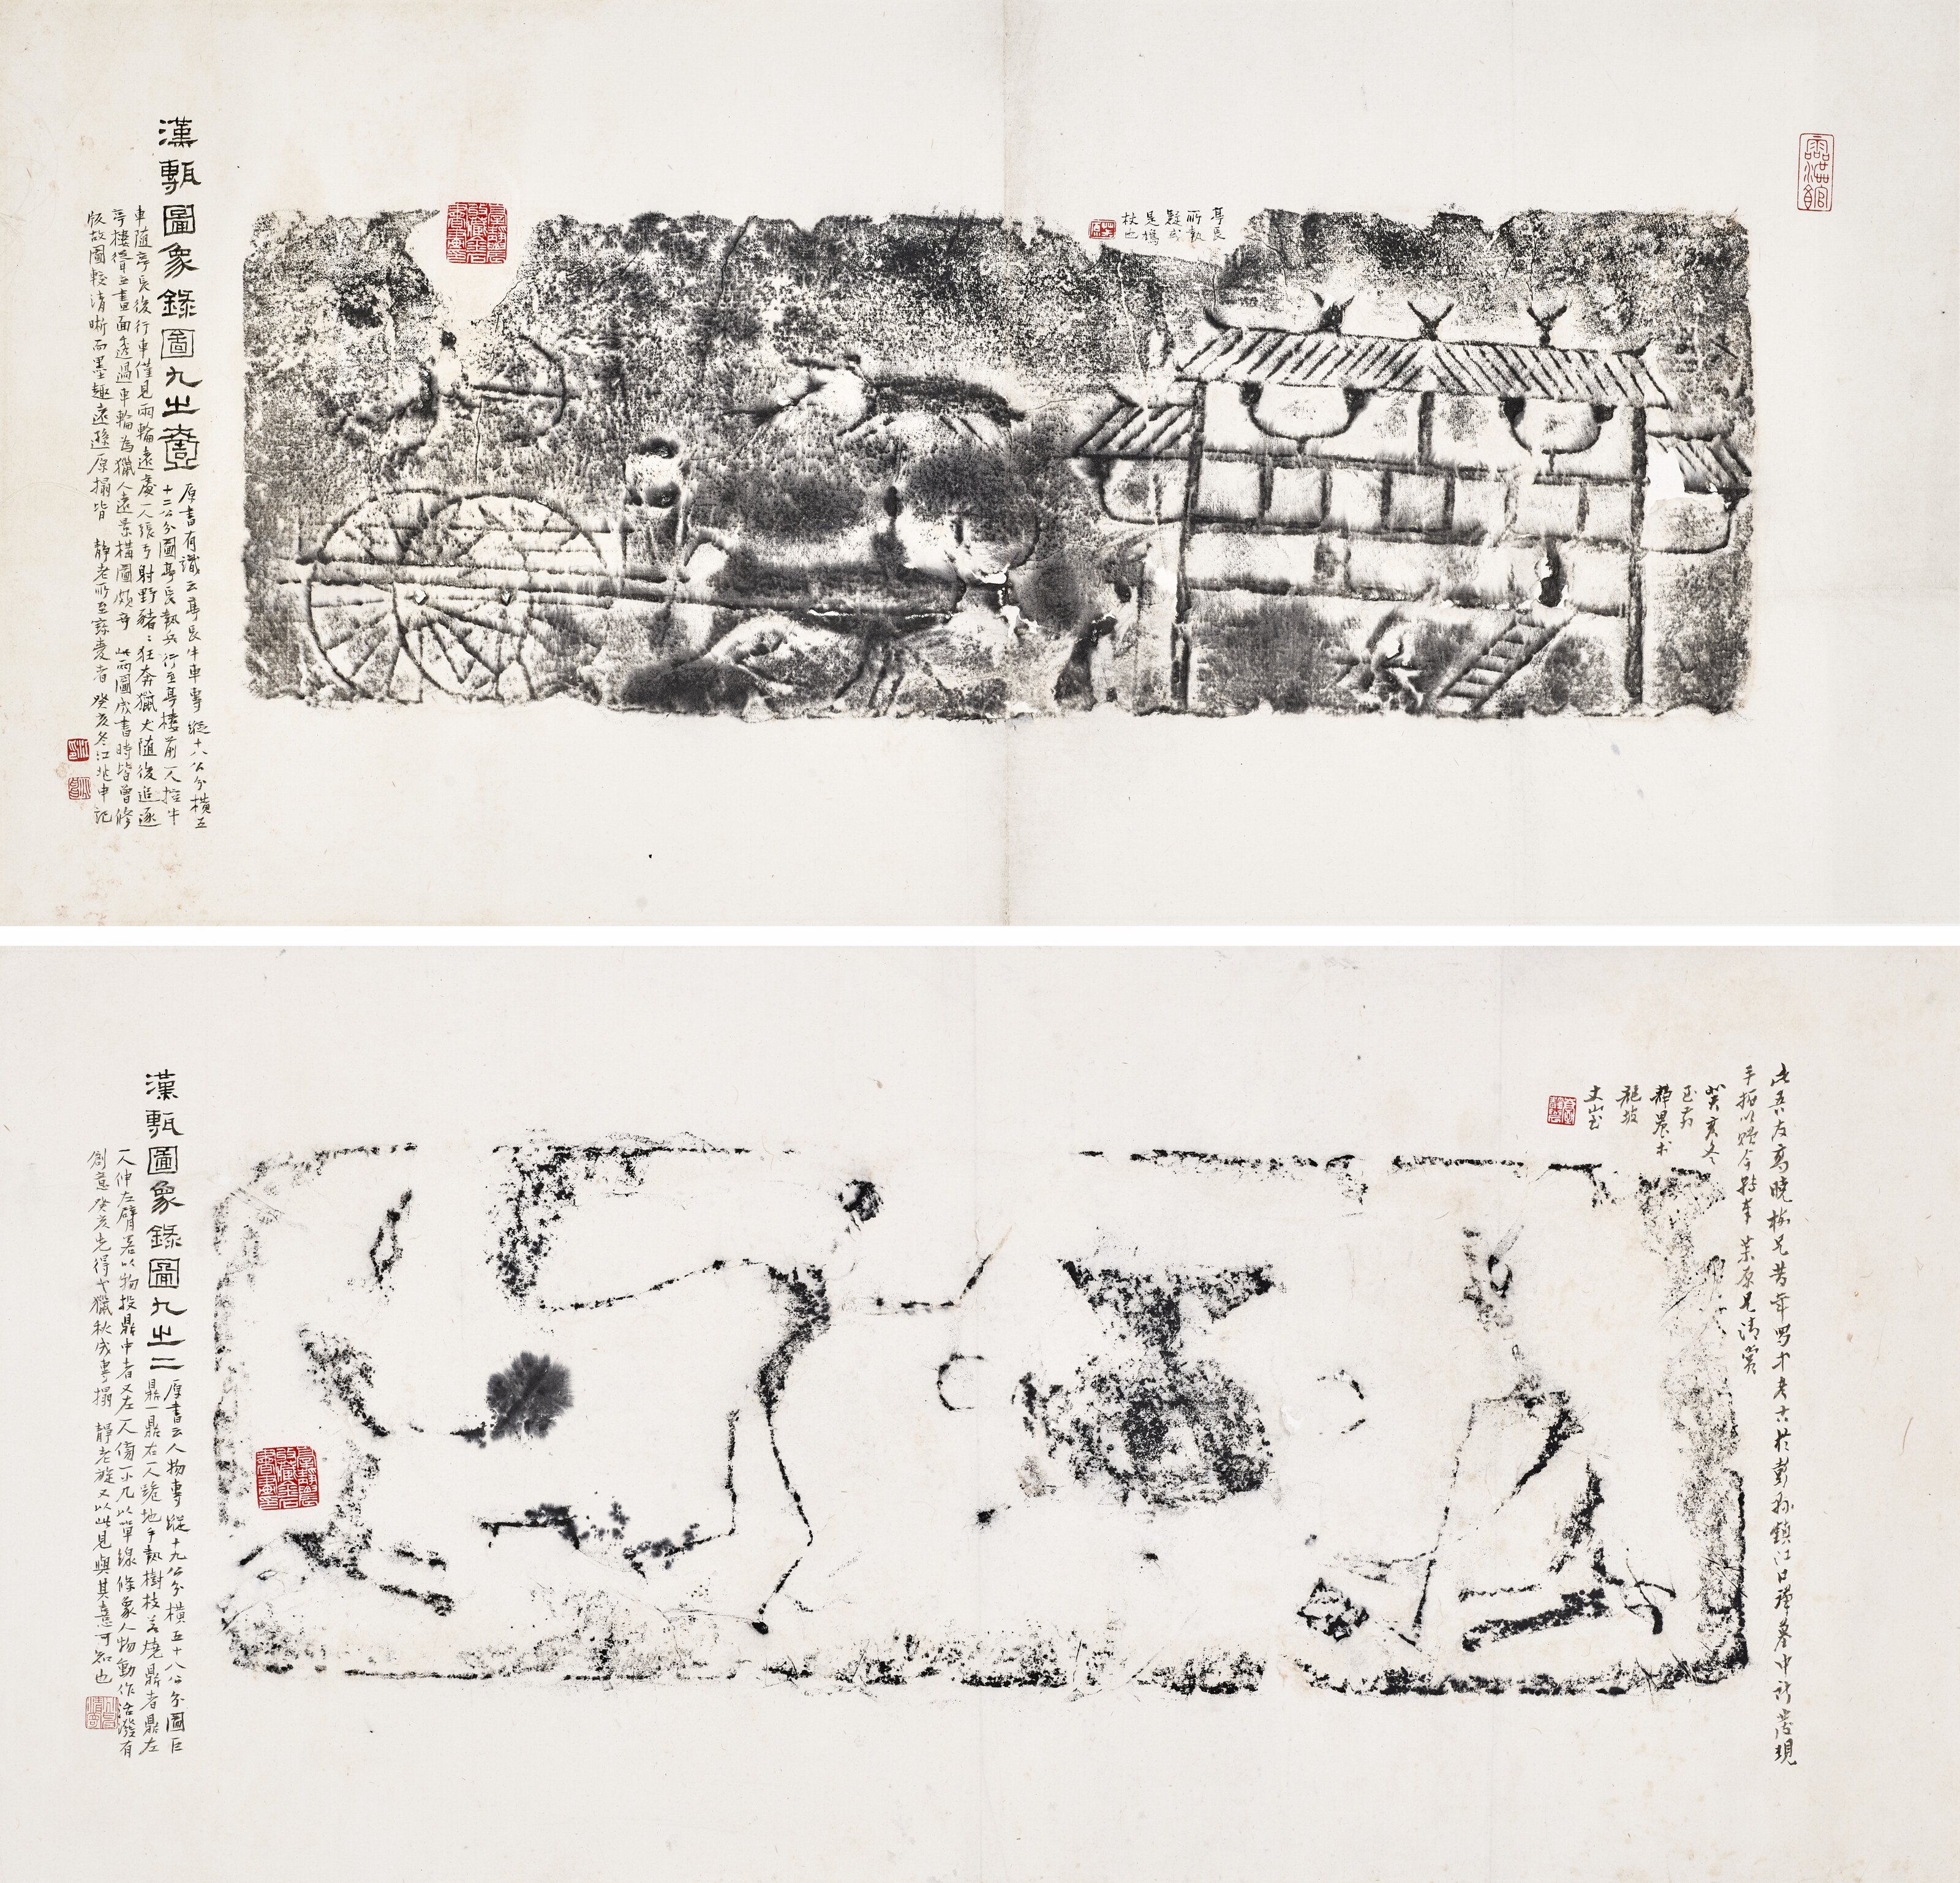 漢甎圖象錄圖九之壹
原書有識云亭長牛車專縱十八公分橫五
十二公分圖亭長執兵行至亭樓前一人控牛
車隨亭長後行車僅見兩輪遠處一人張弓射野豬豬狂奔獵犬隨後追逐
亭樓聳立畫面透過車輪為獵人遠景構圖頗奇 此兩圖成書時皆曾修
版故圖較清晰而墨趣遠遜原搨皆 靜老所至寶愛者 癸亥冬江兆申記
亭長
所執
疑或
是鳩
杖也
漢甎圖象錄圖九之二
原書云人物專縱十九公分橫五十八公分圖巨
鼎一鼎右一人跪地手執樹枝若燒鼎者鼎左
一人伸左臂若以物投鼎中者又左一人傍一小几以單線條象人物動作活潑有
創意 癸亥先得弋獵秋成專搨 靜老旋又以此見與其意可知也
此吾友高曉梅兄昔年男才考古於彭縣鎮江口漢墓中所發現
手拓以贈今轉奉 茮原兄清賞
癸亥冬
靜農於
龍坡